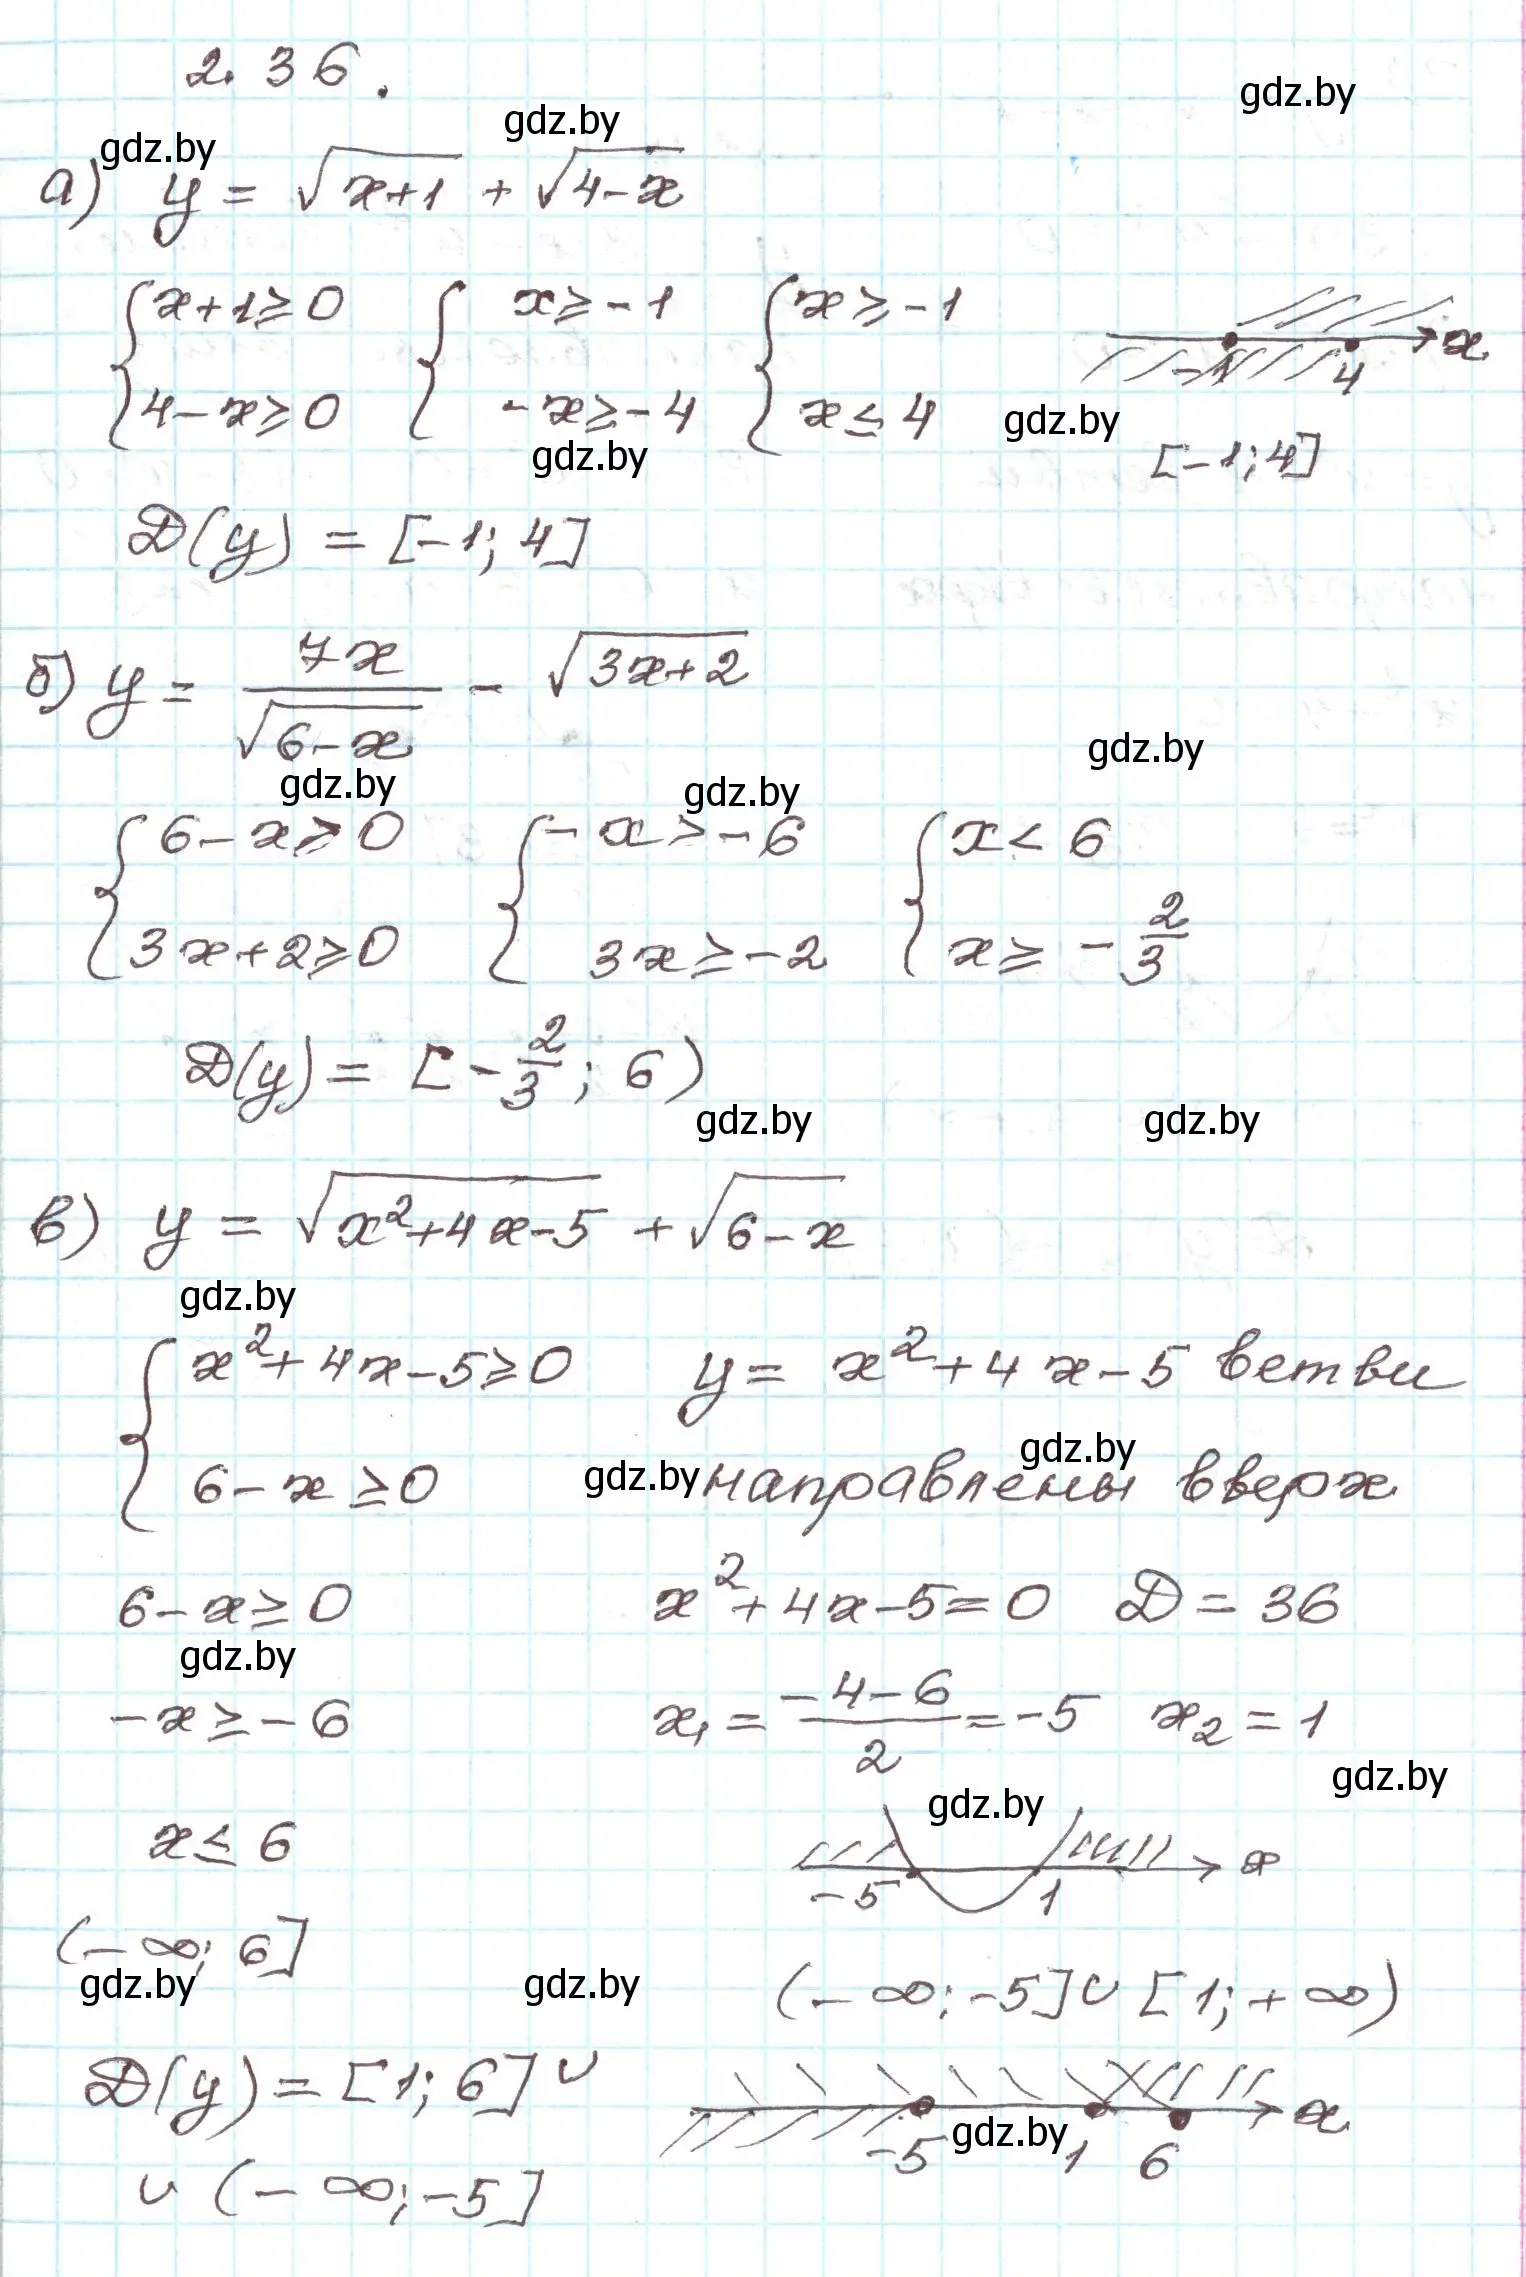 2.36.
gdz.by gdz.by gdz.by
а) y = √(x+1) + √(4-x)
{x+1≥0 {x≥-1 {x≥-1
-1 4 x
{4-x≥0 {-x≥-4 {x≤4
gdz.by gdz.by
[-1;4]
D(y) = [-1; 4]
б) y = 7x/√(6-x) - √(3x+2)
gdz.by gdz.by gdz.by
{6-x>0 {-x>-6 {x<6
{3x+2≥0 {3x≥-2 {x≥-2/3
D(y) = [-2/3; 6)
gdz.by gdz.by
в) y = √(x²+4x-5) + √(6-x)
gdz.by
{x²+4x-5≥0 y = x²+4x-5 ветви
gdz.by gdz.by
{6-x≥0 направлены вверх
6-x≥0 x²+4x-5=0 D=36
gdz.by
-x≥-6 x₁ = (-4-6)/2 = -5 x₂=1
gdz.by gdz.by
x≤6 -5 1 x
(-∞; 6] (-∞;-5]∪[1;+∞)
gdz.by gdz.by
D(y) = [1; 6] ∪
-5 1 6 x
gdz.by
∪ (-∞;-5]